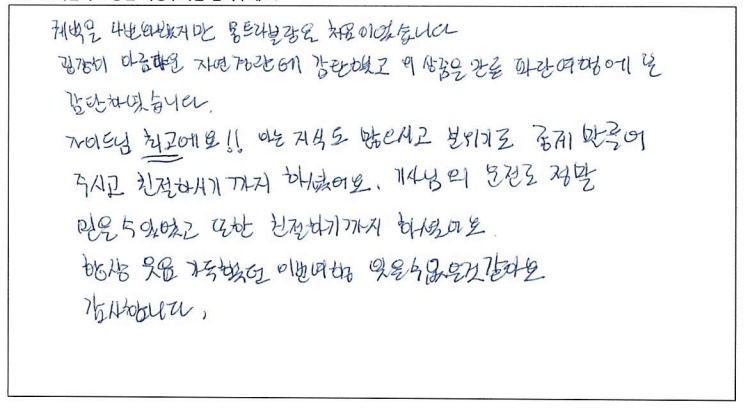 퀘백은 나번와봤지만 몽트라블랑은 처음이었습니다
굉장히 아름다운 자연경관에 감탄했고 이 상품을 만든 파란여행에 또
감탄하였습니다.
가이드님 최고에요!! 아는 지식도 많으시고 분위기도 좋게 만들어
주시고 친절하시기까지 하셨어요. 기사님의 운전도 정말
믿을수있었고 또한 친절하기까지 하셨어요.
항상 웃음 가득했던 이번여행 잊을수없을것같아요
감사합니다.